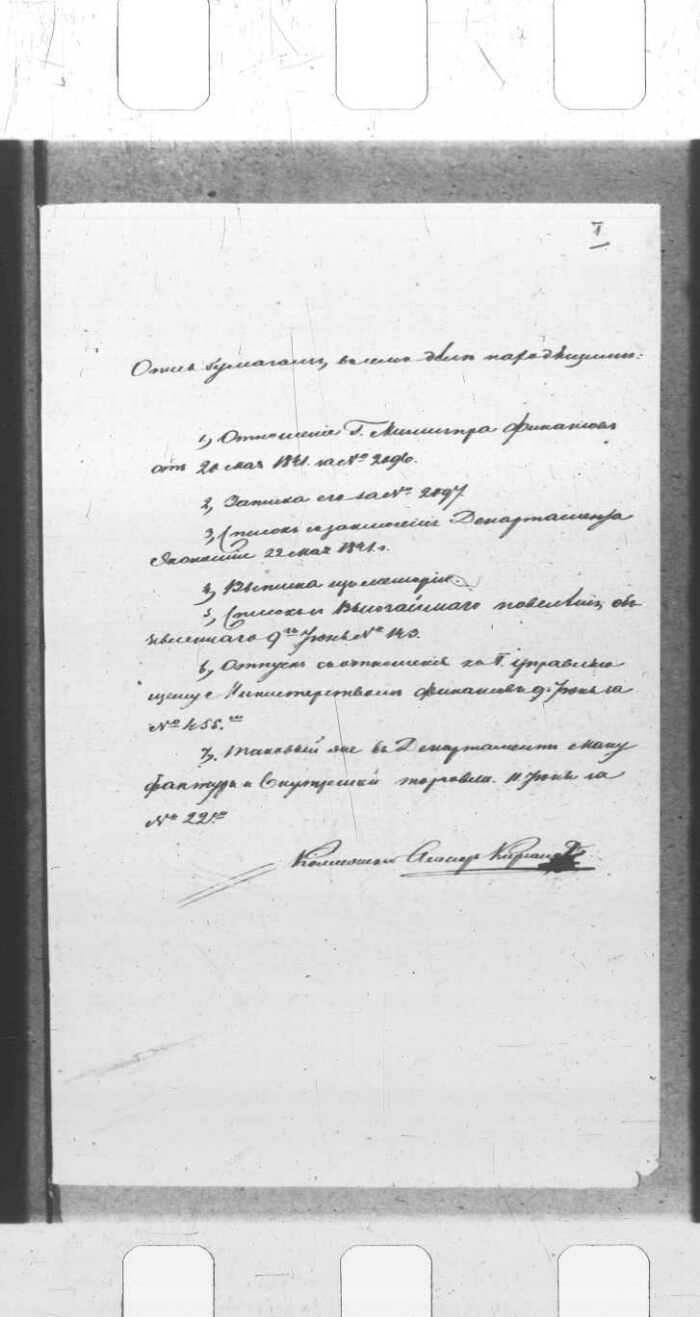 I
Опись бумагамъ, въ семъ дѣлѣ находящимся:
1, Отношеніе Г. Министра Финансовъ
отъ 20 мая 1841. за № 2096.
2, Записка его за № 2097.
3, Списокъ съ заключенія Департамента
Экономіи 22 мая 1841 г.
4, Выписка изъ меморіи.
5, Списокъ Высочайшаго повелѣнія, объ
явленнаго 9го Іюня № 143.
6, Отпускъ съ отношенія къ Г. Управляю
щему Министерствомъ Финансовъ 9. Іюня за
№ 455.
7, Таковый же въ Департаментъ Ману
фактуръ и Внутренней торговли. 11 Іюня за
№ 22